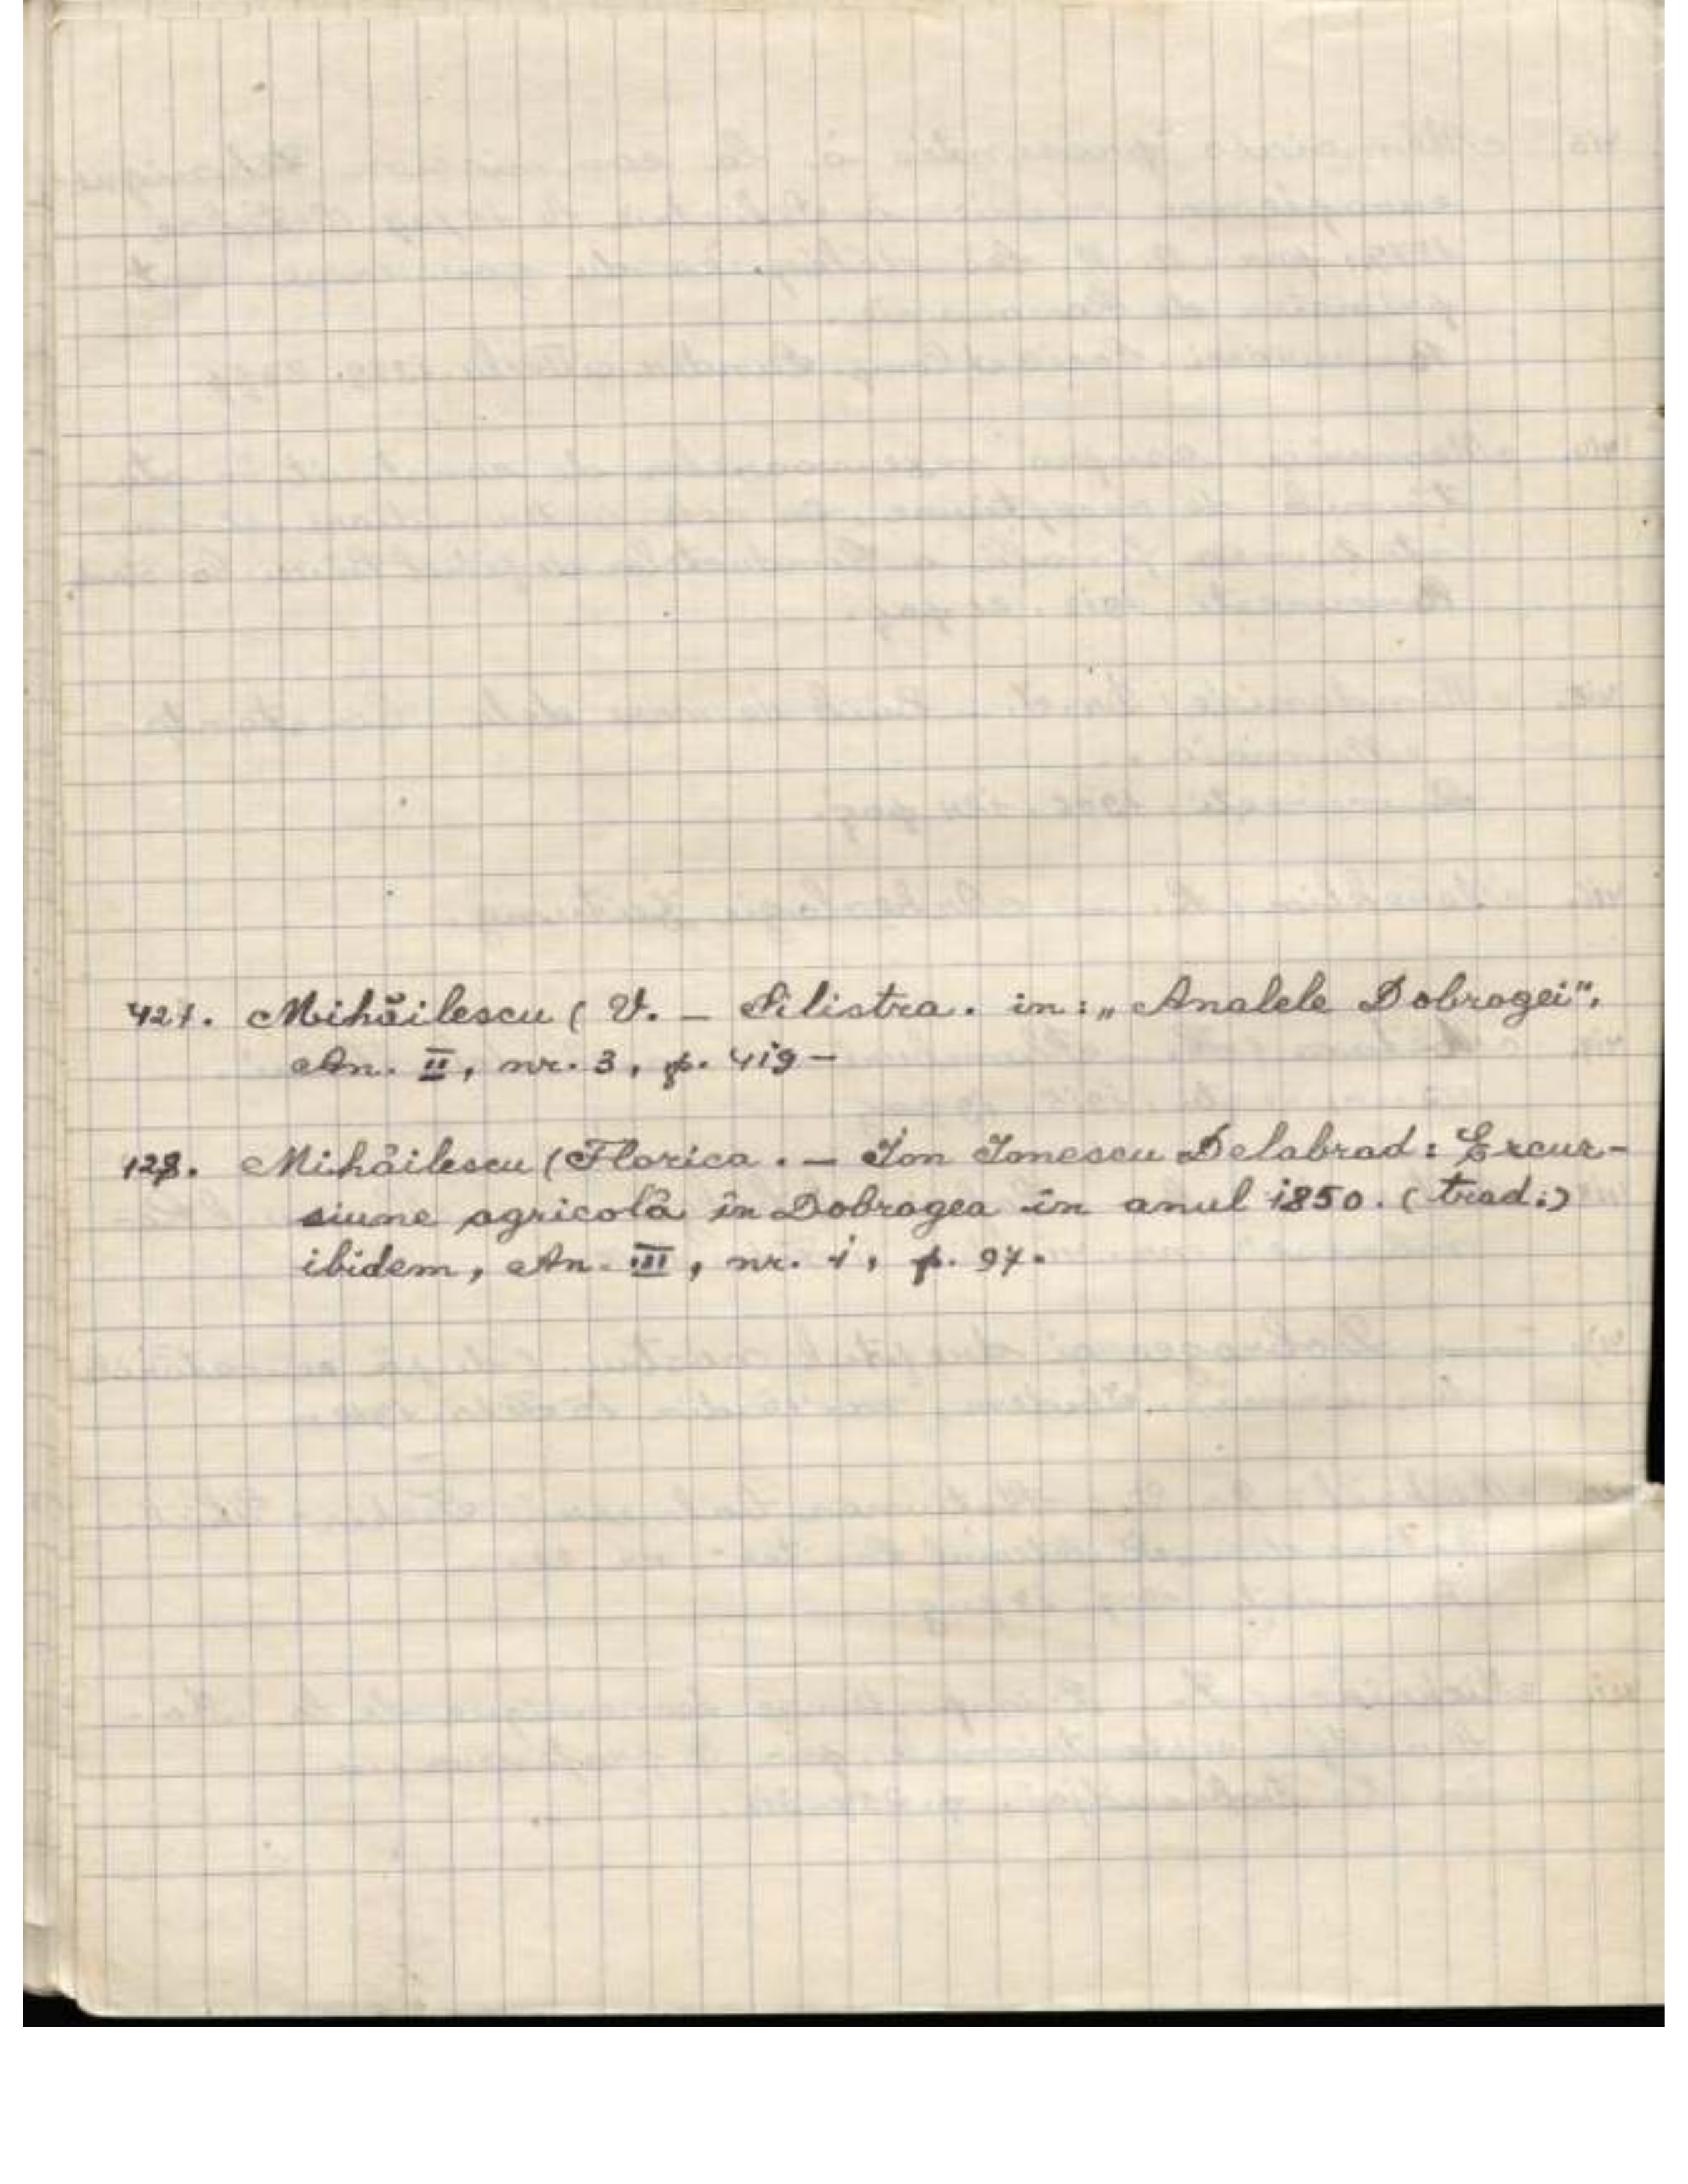 421. Mihăilescu ( V. – Silistra. in: „Analele Dobrogei",
An. II, nr. 3, p. 419 –
128. Mihăilescu (Florica. – Ion Ionescu Delabrad: Excur-
siune agricolă în Dobrogea în anul 1850. (trad:)
ibidem, An. III, nr. 1, p. 97.